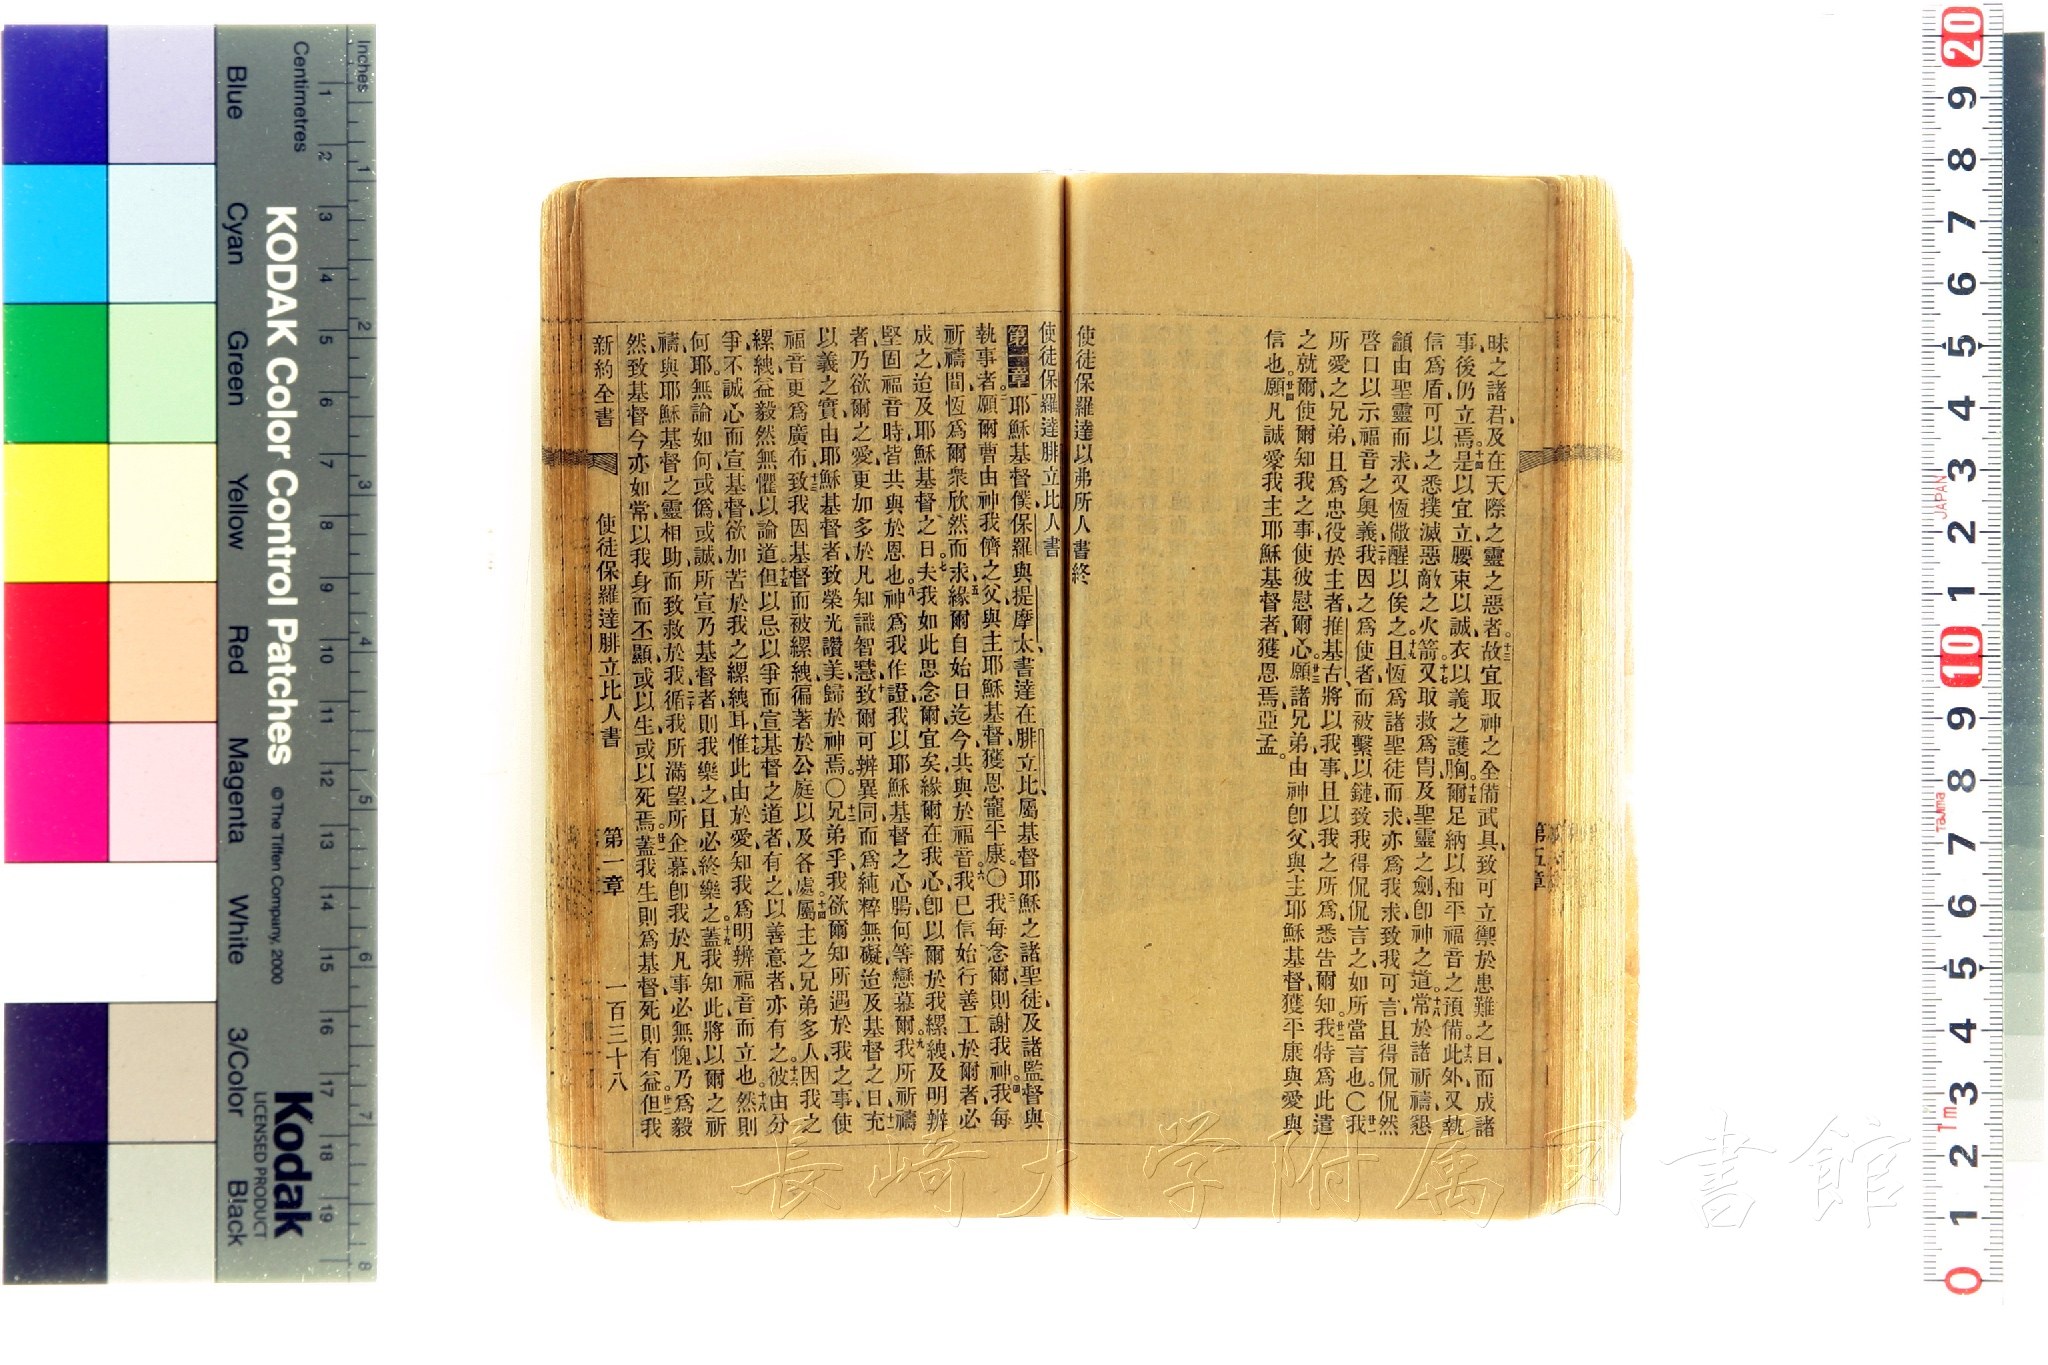 昧之諸君、及在天際之靈之惡者、故宜取神之全備武具、致可立禦於患難之日、而成諸
事後仍立焉、是以宜立、腰束以誠、衣以義之護胸、爾足納以和平福音之預備、此外、又執
信爲盾、可以之悉撲滅惡敵之火箭、又取救爲冑、及聖靈之劍、卽神之道、常於諸祈禱懇
籲、由聖靈而求、又恆儆醒以俟之、且恆爲諸聖徒而求、亦爲我求、致我可言、且得侃侃然
啓口、以示福音之奧義、我因之爲使者、而被繫以鏈、致我得侃侃言之、如所當言也、〇我
所愛之兄弟、且爲忠役於主者、推基古、將以我事、且以我之所爲、悉告爾知、我特爲此遣
之就爾、使爾知我之事、使彼慰爾心、願諸兄弟、由神卽父、與主耶穌基督、獲平康、與愛與
信也、願凡誠愛我主耶穌基督者、獲恩焉、亞孟。
使徒保羅達以弗所人書終
第五章
使徒保羅達腓立比人書
第一章 耶穌基督僕保羅、與提摩太、書達在腓立比、屬基督耶穌之諸聖徒、及諸監督與
執事者、願爾曹由神我儕之父、與主耶穌基督、獲恩寵平康、〇我每念爾、則謝我神、我每
祈禱間、恆爲爾衆欣然而求、緣爾自始日迄今、共與於福音、我已信始行善工於爾者、必
成之、迨及耶穌基督之日、夫我如此思念爾宜矣、緣爾在我心、卽以爾於我縲絏、及明辨
堅固福音時、皆共與於恩也、神爲我作證、我以耶穌基督之心腸、何等戀慕爾、我所祈禱
者、乃欲爾之愛、更加多於凡知識智慧、致爾可辨異同、而爲純粹無礙、迨及基督之日、充
以義之實、由耶穌基督者、致榮光讚美、歸於神焉、〇兄弟乎、我欲爾知所遇於我之事、使
福音更爲廣布、致我因基督而被縲絏、徧著於公庭、以及各處、屬主之兄弟、多人因我之
縲絏、益毅然無懼以論道、但以忌以爭而宣基督之道者有之、以善意者、亦有之、彼由分
爭不誠心而宣基督、欲加苦於我之縲絏耳、惟此由於愛、知我爲明辨福音而立也、然則
何耶、無論如何、或僞或誠、所宣乃基督者、則我樂之、且必終樂之、蓋我知此將以爾之祈
禱、與耶穌基督之靈相助、而致救於我、循我所滿望所企慕、卽我於凡事必無愧、乃爲毅
然、致基督今亦如常以我身而丕顯、或以生、或以死焉、蓋我生則爲基督、死則有益、但我
新約全書
使徒保羅達腓立比人書
第一章
一百三十八
KODAK Color Control Patches
© The Tiffen Company, 2000
Kodak
LICENSED PRODUCT
Inches
Centimetres
Blue
Cyan
Green
Yellow
Red
Magenta
White
3/Color
Black
JAPAN
Tajima
長崎大学附属図書館